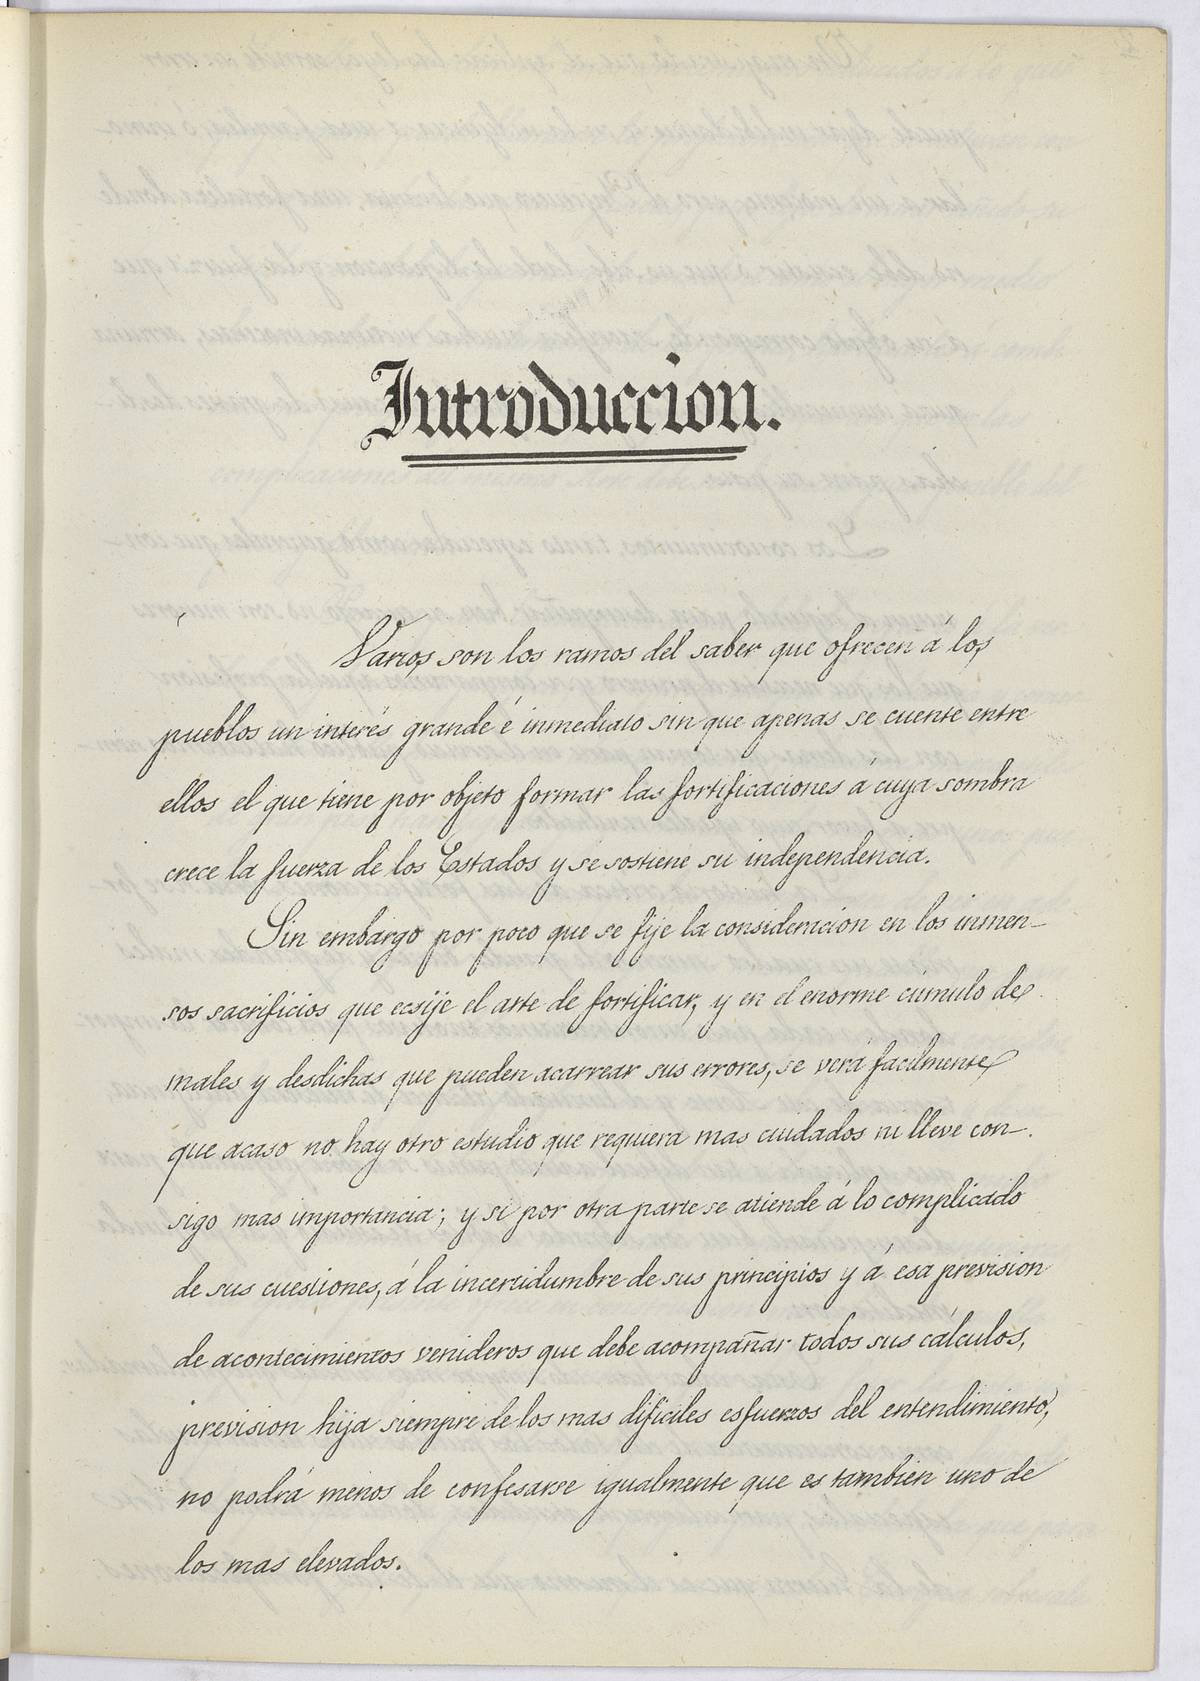 Introduccion.
Varios son los ramos del saber que ofrecen á los
pueblos un interés grande é inmediato sin que apenas se cuente entre
ellos el que tiene por objeto formar las fortificaciones á cuya sombra
crece la fuerza de los Estados y se sostiene su independencia.
Sin embargo por poco que se fije la consideracion en los inmen-
sos sacrificios que ecsije el arte de fortificar, y en el enorme cúmulo de
males y desdichas que pueden acarrear sus errores, se verá facilmente
que acaso no hay otro estudio que requiera mas cuidados ni lleve con-
sigo mas importancia; y si por otra parte se atiende á lo complicado
de sus cuestiones, á la incertidumbre de sus principios y á esa prevision
de acontecimientos venideros que debe acompañar todos sus cálculos,
prevision hija siempre de los mas dificiles esfuerzos del entendimiento,
no podrá menos de confesarse igualmente que es tambien uno de
los mas elevados.